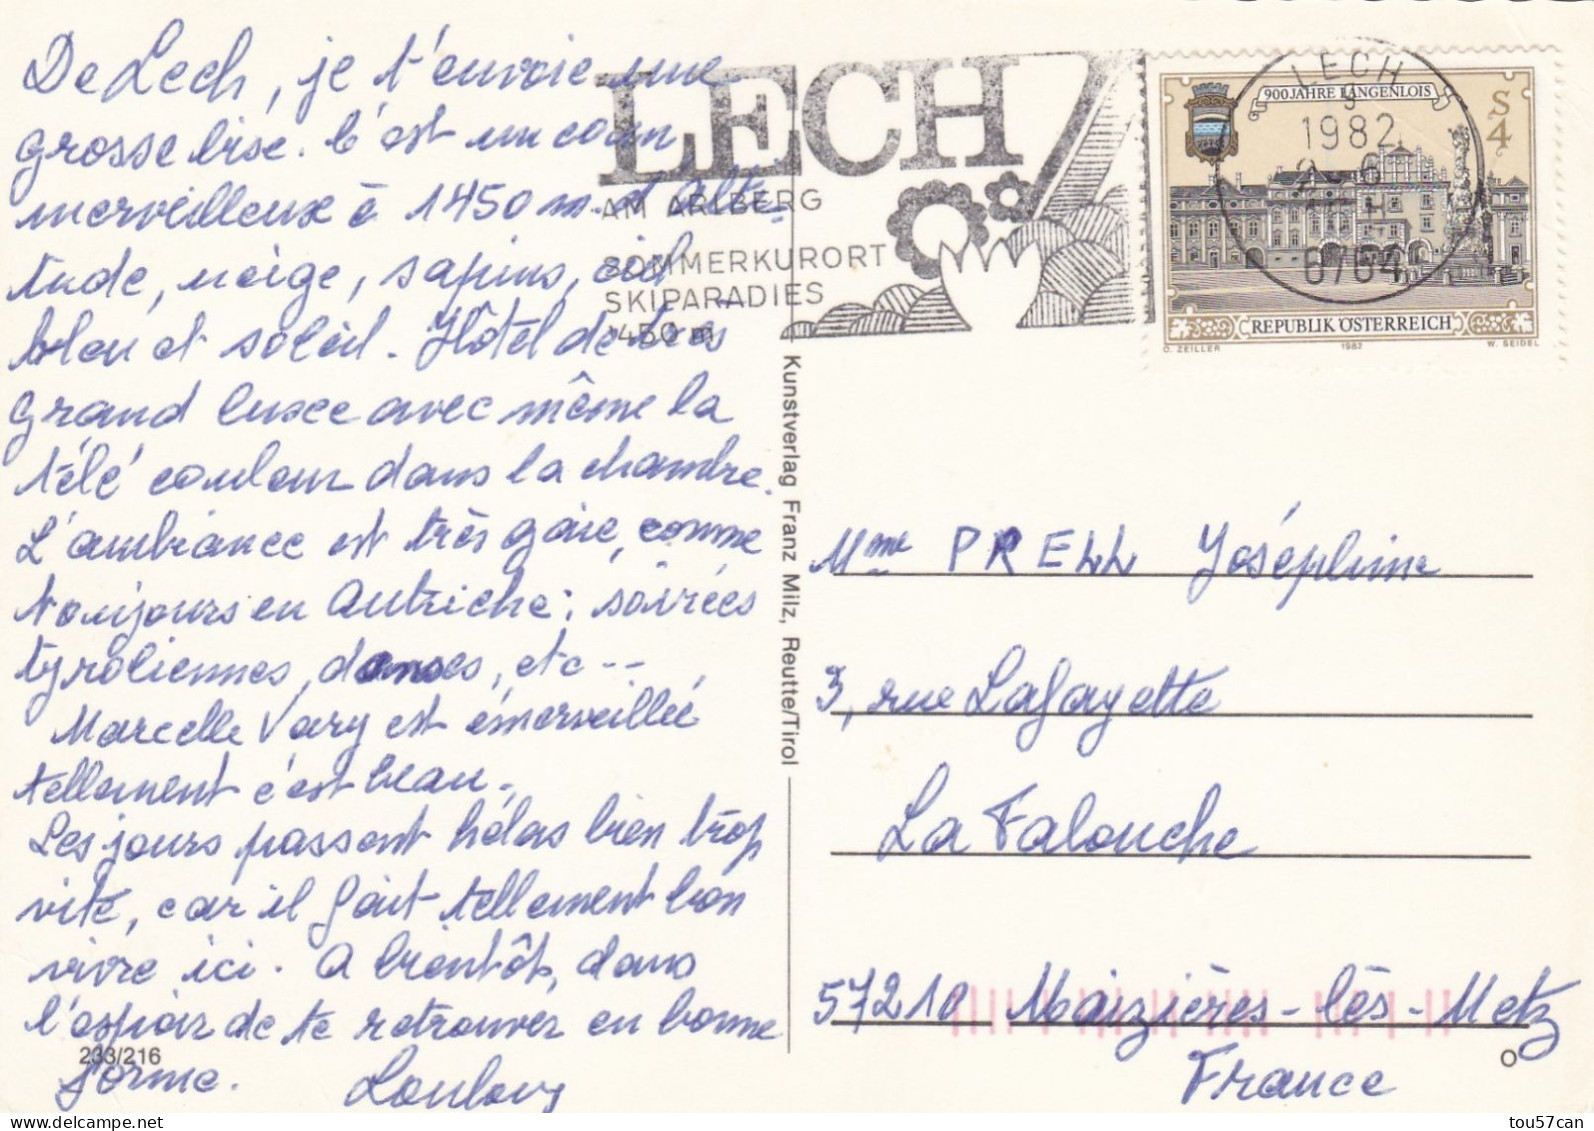 De Lech, je t'envoie une
grosse bise. C'est un coin
merveilleux à 1450 m. d'alti-
tude, neige, sapins, ciel
bleu et soleil. Hôtel de très
grand luxe avec même la
télé couleur dans la chambre.
L'ambiance est très gaie, comme
toujours en Autriche : soirées
tyroliennes, danses, etc --
Marcelle Vary est émerveillée
tellement c'est beau.
Les jours passent hélas bien trop
vite, car il fait tellement bon
vivre ici. A bientôt, dans
l'espoir de te retrouver en bonne
forme. Loulou
233/216
LECH
AM ARLBERG
SOMMERKURORT
SKIPARADIES
1450 m
Kunstverlag Franz Milz, Reutte/Tirol
LECH
1982
6764
900 JAHRE LANGENLOIS
S 4
REPUBLIK ÖSTERREICH
O. ZEILLER 1982 W. SEIDEL
Mme PRELL Joséphine
3, rue Lafayette
La Falouche
57210 Maizières-lès-Metz
France
O
tou57can